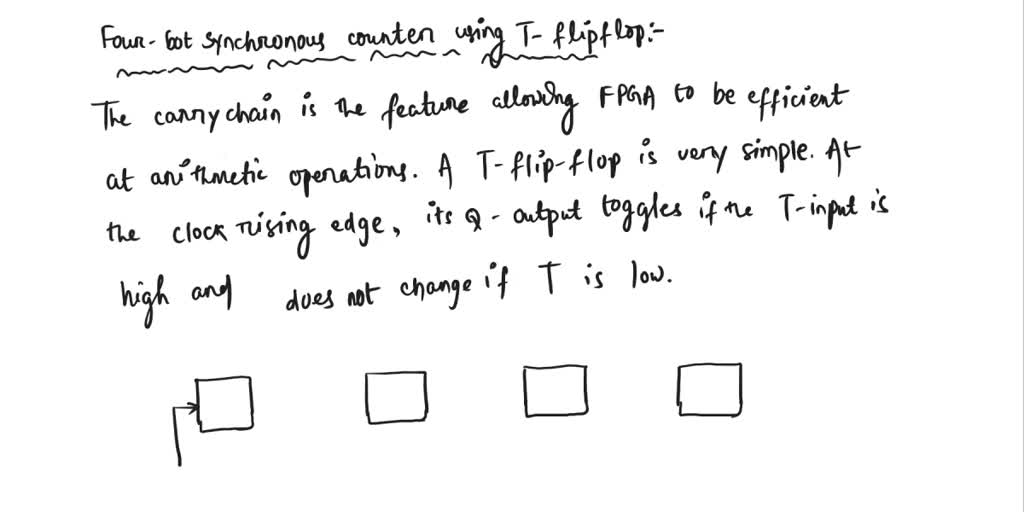 Four-bot synchronous counter using T-flipflop:-
The carry chain is the feature allowing FPGA to be efficient
at arithmetic operations. A T-flip-flop is very simple. At
the clock rising edge, its Q-output toggles if the T-input is
high and does not change if T is low.